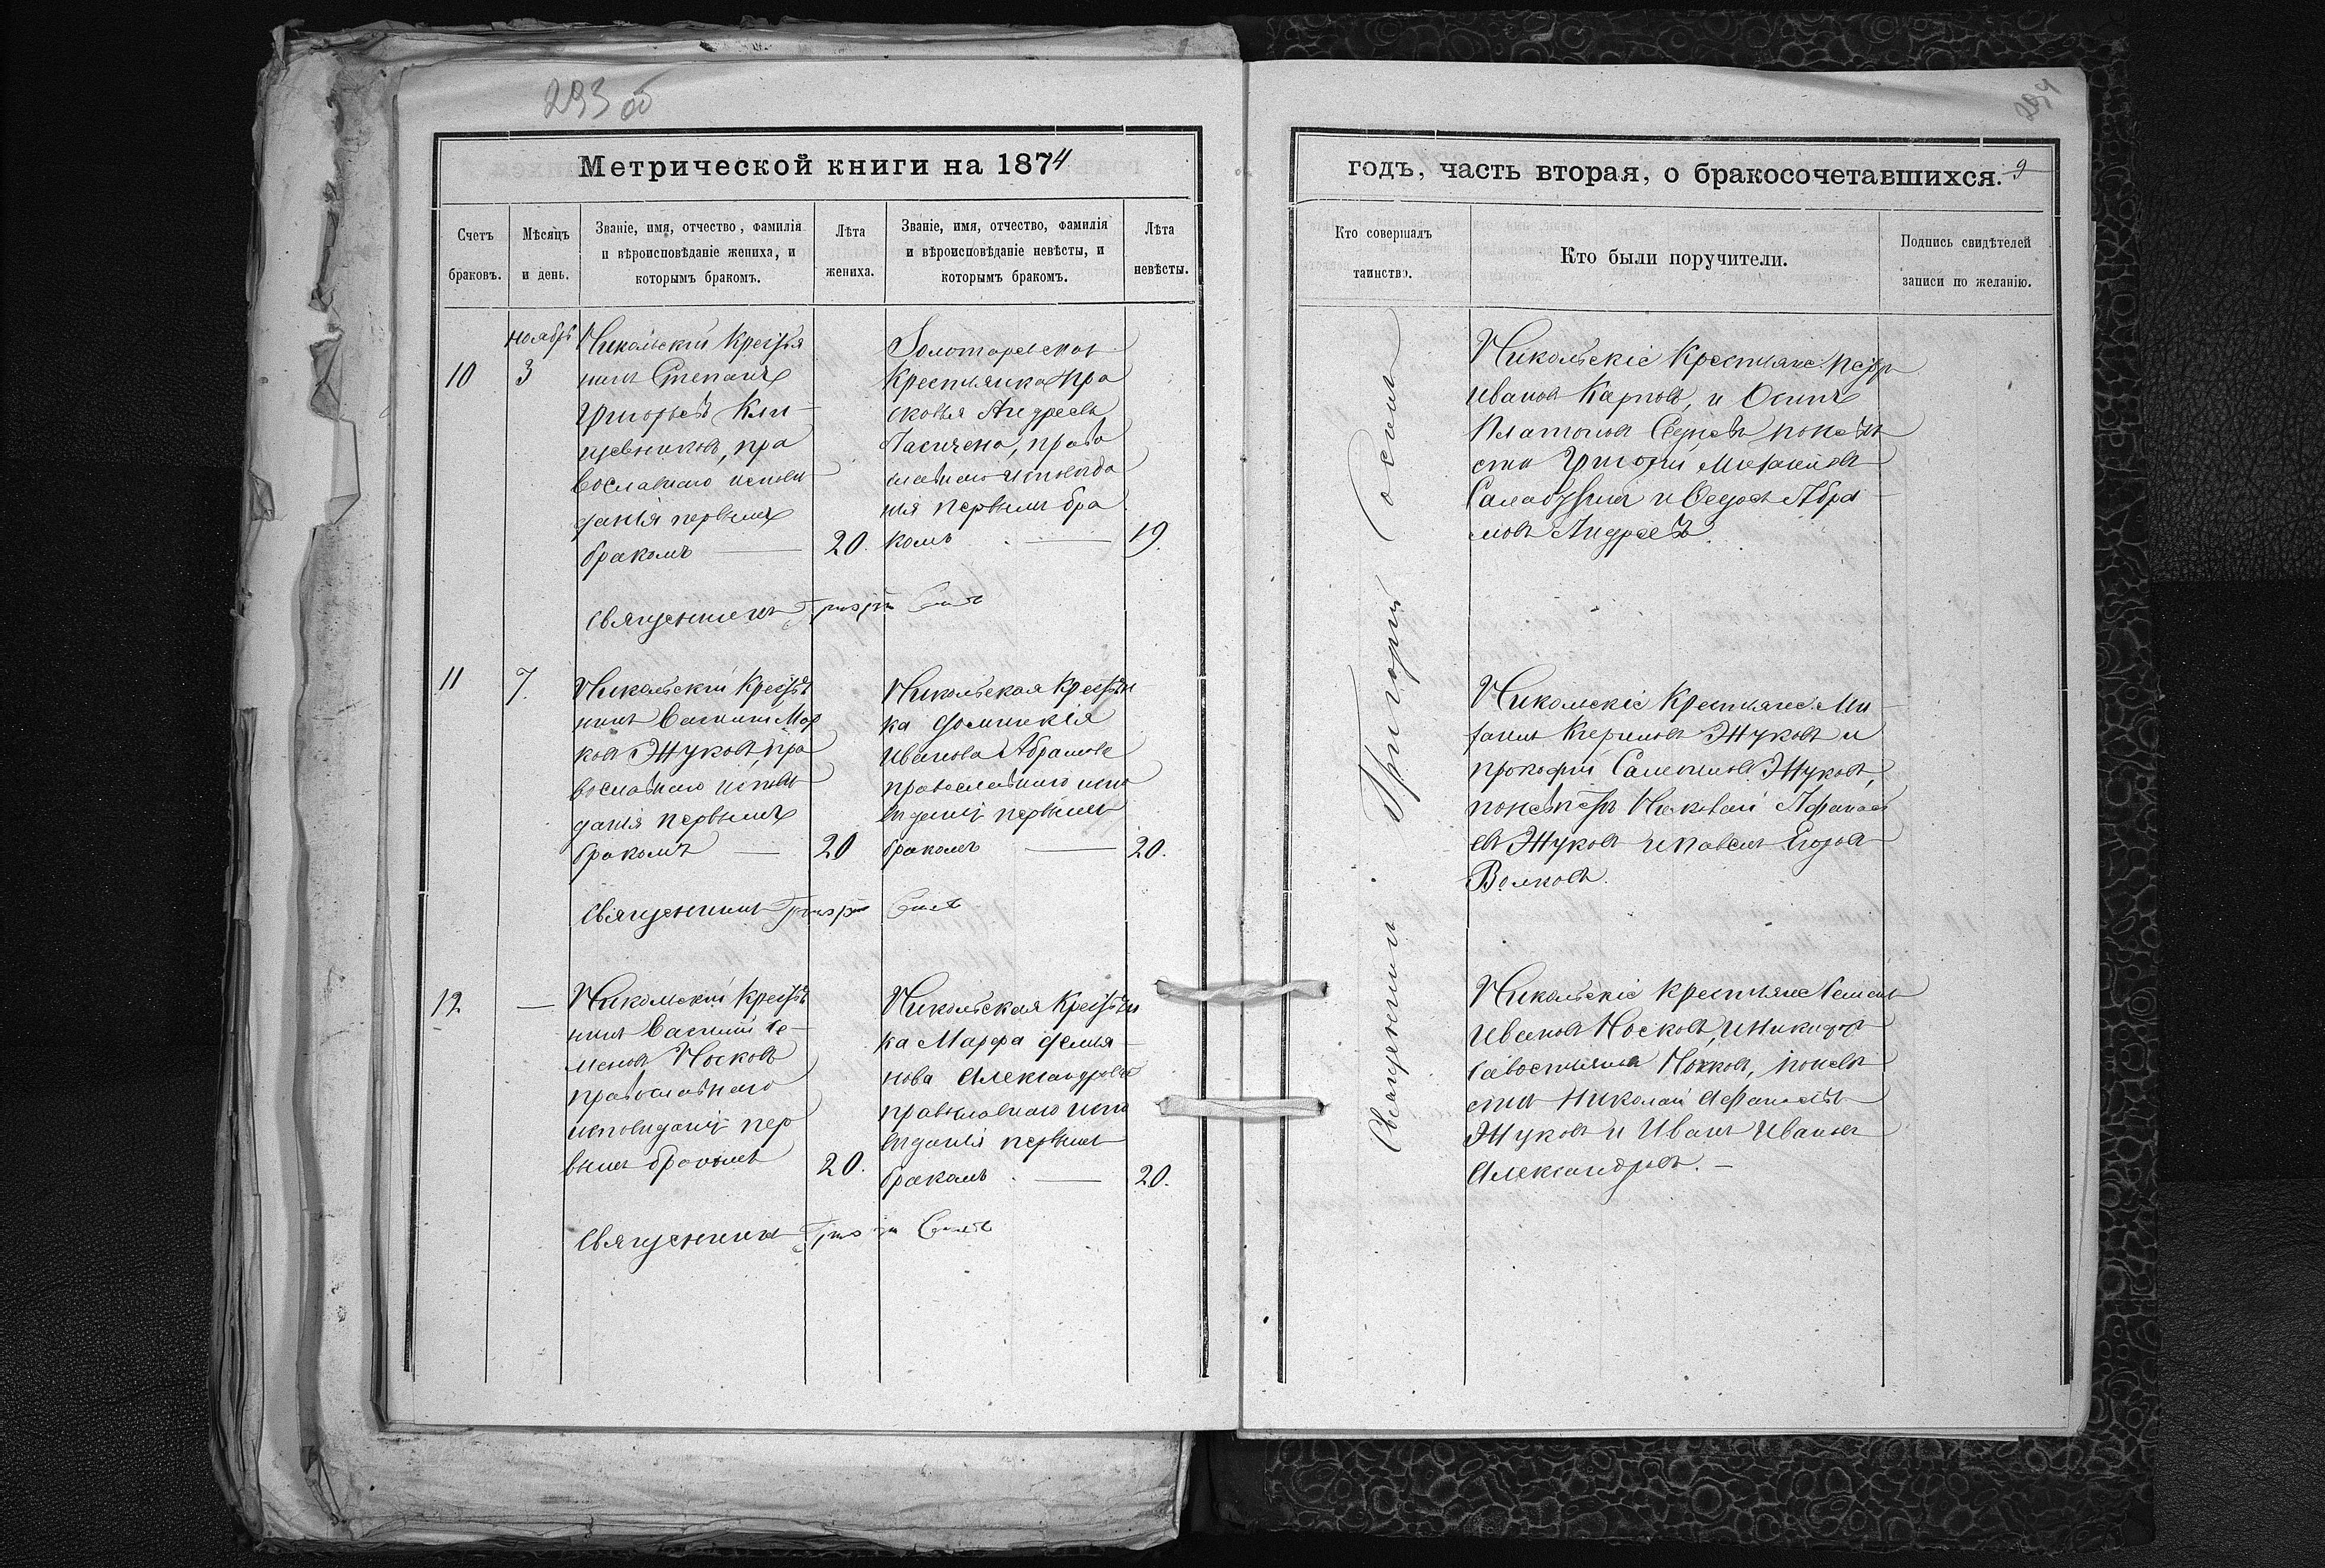 293 об
Метрической книги на 1874
Счетъ браковъ.
Мѣсяцъ и день.
Званіе, имя, отчество, фамилія
и вѣроисповѣданіе жениха, и
которымъ бракомъ.
Лѣта жениха.
Званіе, имя, отчество, фамилія
и вѣроисповѣданіе невѣсты, и
которымъ бракомъ.
Лѣта невѣсты.
10
ноябрь
3
Никольскій Кресть
нинъ Степанъ
Григорьевъ
православнаго исповѣ
данія первымъ
бракомъ
20.
Крестьянка Пра
сковья Андреева
право
славнаго исповѣда
нія первымъ бра
комъ
19.
Священникъ Григорій
11
7.
Никольскій Кресть
нинъ Василій Мар
ковъ Жуковъ, пра
вославнаго исповѣ
данія первымъ
бракомъ
20
Никольская Крестьян
ка Домникія
Иванова Абрамова
православнаго испо
веданія первымъ
бракомъ
20.
Священникъ Григорій
12
—
Никольскій Кресть
нинъ Василій Се-
меновъ Носковъ
православнаго
исповиданія пер
вымъ бракомъ
20.
Никольская Крестьян
ка Марфа Демья-
нова Александрова
православнаго испо
виданія первымъ
бракомъ
20.
Священникъ Григорій
294
годъ, часть вторая, о бракосочетавшихся. 9
Кто совершалъ
таинство.
Кто были поручители.
Подпись свидѣтелей
записи по желанію.
Священникъ Григорій
Никольскіе Крестьяне: Петръ
Ивановъ Карповъ, и Осипъ
Платоновъ по невѣ
сти Григорій
и Федосъ Абра-
мовъ Андреевъ.
Никольскіе Крестьяне: Ми-
Жуковъ и
Прокофій Жуковъ,
по невѣстѣ Афанась
евъ Жуковъ и Павелъ Егоровъ
Волковъ.
Никольскіе Крестьяне Семенъ
Ивановъ Носковъ, и Никифоръ
Савостьяновъ Носковъ, по невѣ
стѣ Николай Афанасьевъ
Жуковъ и Иванъ Ивановъ
Александровъ. —